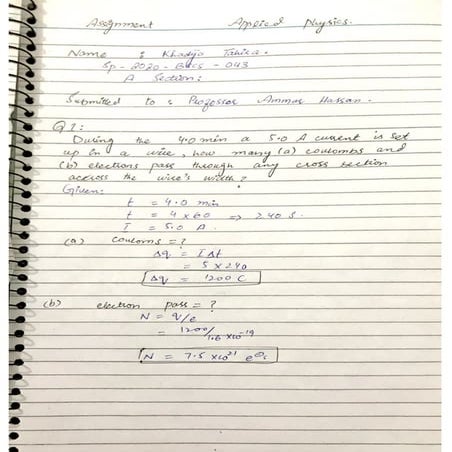 Assignment Applied Physics.
Name : Khadija Tahira.
Sp-2020-BSCS-043
A Section:
Submitted to : Professor Ammar Hassan.
Q1:
During the 4.0 min a 5.0 A current is set
up in a wire, how many (a) coulombs and
(b) electrons pass through any cross section
across the wire's width?
Given:
t = 4.0 min
t = 4 x 60 => 240 s.
I = 5.0 A.
(a) couloms = ?
Δq = IΔt
= 5 x 240
Δq = 1200 C
(b) electron pass = ?
N = q/e
= 1200/1.6 x10⁻¹⁹
N = 7.5 x10²¹